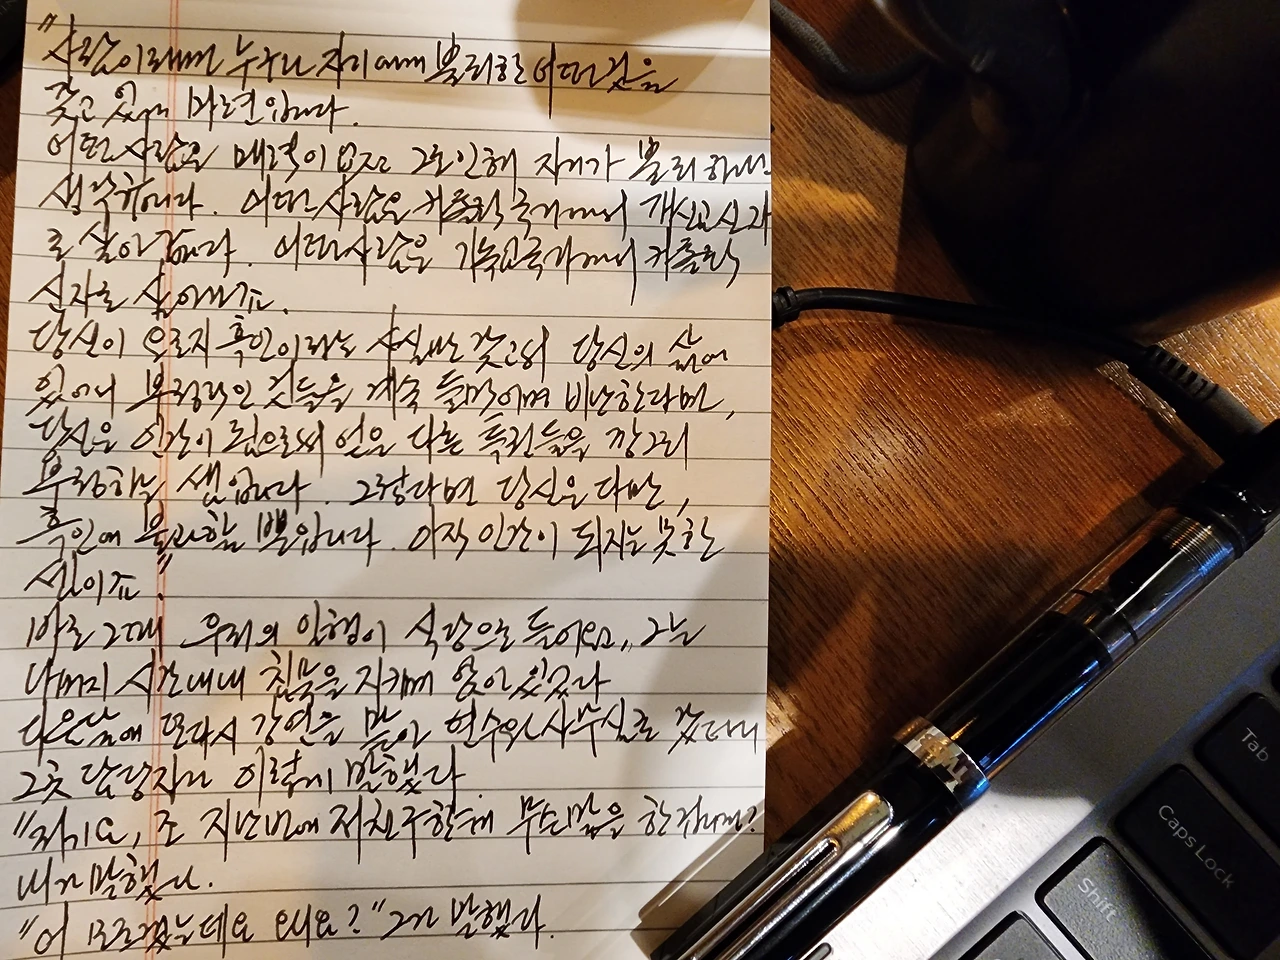 "사람이라면 누구나 자기에게 불리한 어떤 것을
갖고 있게 마련입니다.
어떤 사람은 매력이 없고 그로 인해 자기가 불리하다고
생각합니다. 어떤 사람은 카톨릭 국가에서 개신교 신자
로 살아갑니다. 어떤 사람은 기독교 국가에서 카톨릭
신자로 살아가죠.
당신이 오로지 흑인이라는 사실만 갖고서 당신의 삶에
있어서 부정적인 것들을 계속 들먹이며 비난한다면,
당신은 인간이 됨으로써 얻은 다른 특권들을 깡그리
부정하는 셈입니다. 그렇다면 당신은 다만,
흑인에 불과할 뿐입니다. 아직 인간이 되지는 못한
셈이죠."
바로 그때 우리의 인형이 식당으로 들어왔고, 그는
나머지 시간 내내 침묵을 지키며 앉아 있었다
다음날에 또다시 강연을 맡아 연수원 사무실로 갔더니
그곳 담당자가 이렇게 말했다.
"저기요, 조 지난번에 저 친구한테 무슨 말을 한 거예요?
내가 말했다.
"어 모르겠는데요 왜요?" 그가 말했다.
Tab
Caps Lock
Shift